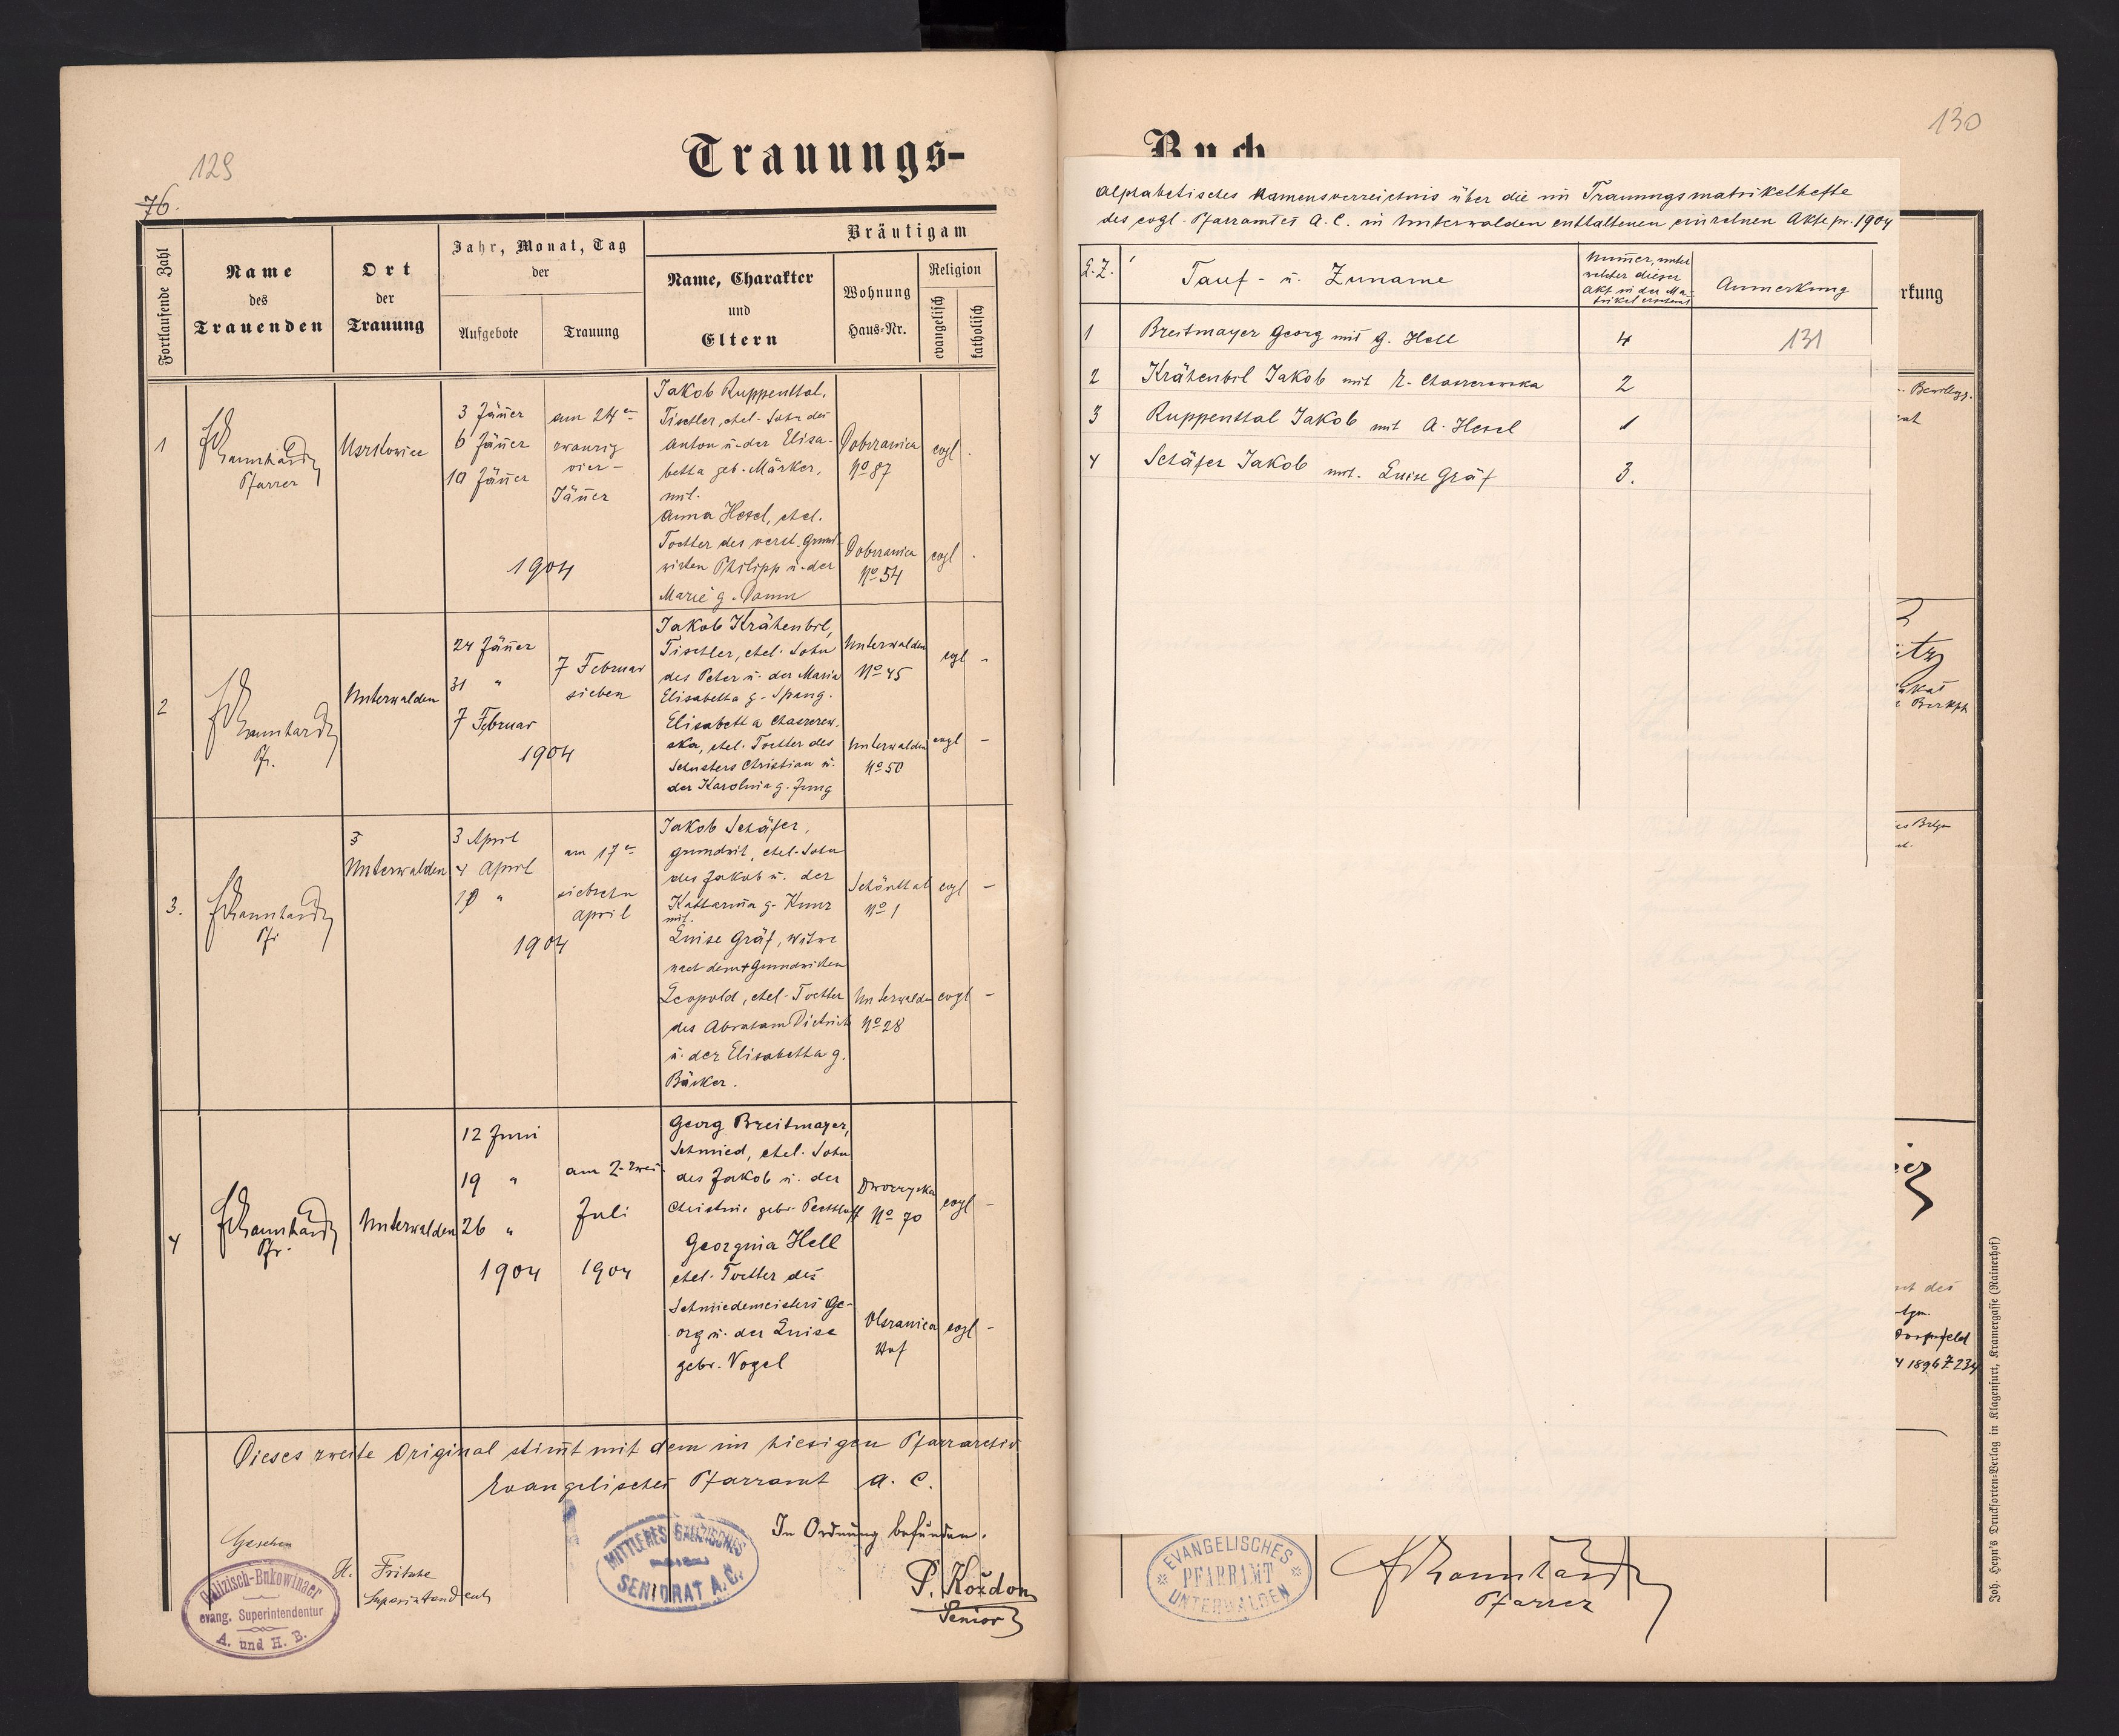 129
76.
Trauungs-
Fortlaufende Zahl
Name
des
Trauenden
Ort
der
Trauung
Jahr, Monat, Tag
der
Aufgebote
Trauung
Bräutigam
Name, Charakter
und
Eltern
Wohnung
Haus-Nr.
Religion
evangelisch
katholisch
1
Pfarrer
3 Jänner
6 Jänner
10 Jänner
am 24
zwanzig
vier-
Jänner
1904
Jakob Ruppenthal,
Tischler, ehel. Sohn des
Anton u. der Elisa-
betha geb. Märker,
mit
Anna Hesel, ehel.
Tochter des verst. Grund-
wirten Philipp u. der
Marie g. Damm
Dobrzanica
No 87
evgl
Dobrzanica
No 54
evgl
2
Pfr.
Unterwalden
24 Jänner
31 "
7 Februar
7 Februar
sieben
1904
Jakob Krähenbil,
Tischler, ehel. Sohn
des Peter u. der Maria
Elisabetha g. Spang.
Elisabetha Chaszczew-
ska, ehel. Tochter des
Schusters Christian u.
der Karolina g. Jung
Unterwalden
No 45
evgl -
Unterwalden
No 50
evgl -
3.
Pfr
Unterwalden
3 April
4 April
10 "
am 17
siebzehn
April
1904
Jakob Schäfer,
Grundwirt, ehel. Sohn
des Jakob u. der
Katharina g. Kunz
mit
Luise Gräf, Witwe
nach dem + Grundwirten
Leopold, ehel. Tochter
des Abraham Dietrich
u. der Elisabetha g.
Bäcker.
Schönthal
No 1
evgl -
Unterwalden
No 28
evgl -
4
Pfr.
Unterwalden
12 Juni
19 "
26 "
1904
am 2. zwei
Juli
1904
Georg Breitmayer,
Schmied, ehel. Sohn
des Jakob u. der
Christine gebr.
Georgina Hell
ehel. Tochter des
Schmiedemeisters Ge-
org u. der Luise
gebr. Vogel
No 70
evgl -
Hof
evgl -
Dieses zweite Original stimmt mit dem im hiesigen Pfarrarchiv
Evangelisches Pfarramt A. C.
In Ordnung befunden.
P. Koždon
Senior
Gesehen
H. Fritsche
Superintendent
Galizisch-Bukowinaer
evang. Superintendentur
A. und H. B.
MITTLERES GALIZISCHES
SENIORAT A. C.
130
Buch
Alphabetisches Namensverzeichnis über die im Trauungsmatrikelhefte
des evgl. Pfarramtes A. C. in Unterwalden enthaltenen einzelnen Akte pr. 1904
L.Z.
Tauf- u. Zuname
Nummer, unter
welcher dieser
Akt in der Ma-
trikel erscheint
Anmerkung
1 Breitmayer Georg mit G. Hell 4 131
2 Krähenbil Jakob mit E. Chaszczewska 2
3 Ruppenthal Jakob mit A. Hesel 1
4 Schäfer Jakob mit Luise Gräf 3.
rkung
1896 Z 234
EVANGELISCHES
PFARRAMT
UNTERWALDEN
Pfarrer
Joh. Heyn's Drucksorten-Verlag in Klagenfurt, Kramergasse (Rainerhof)